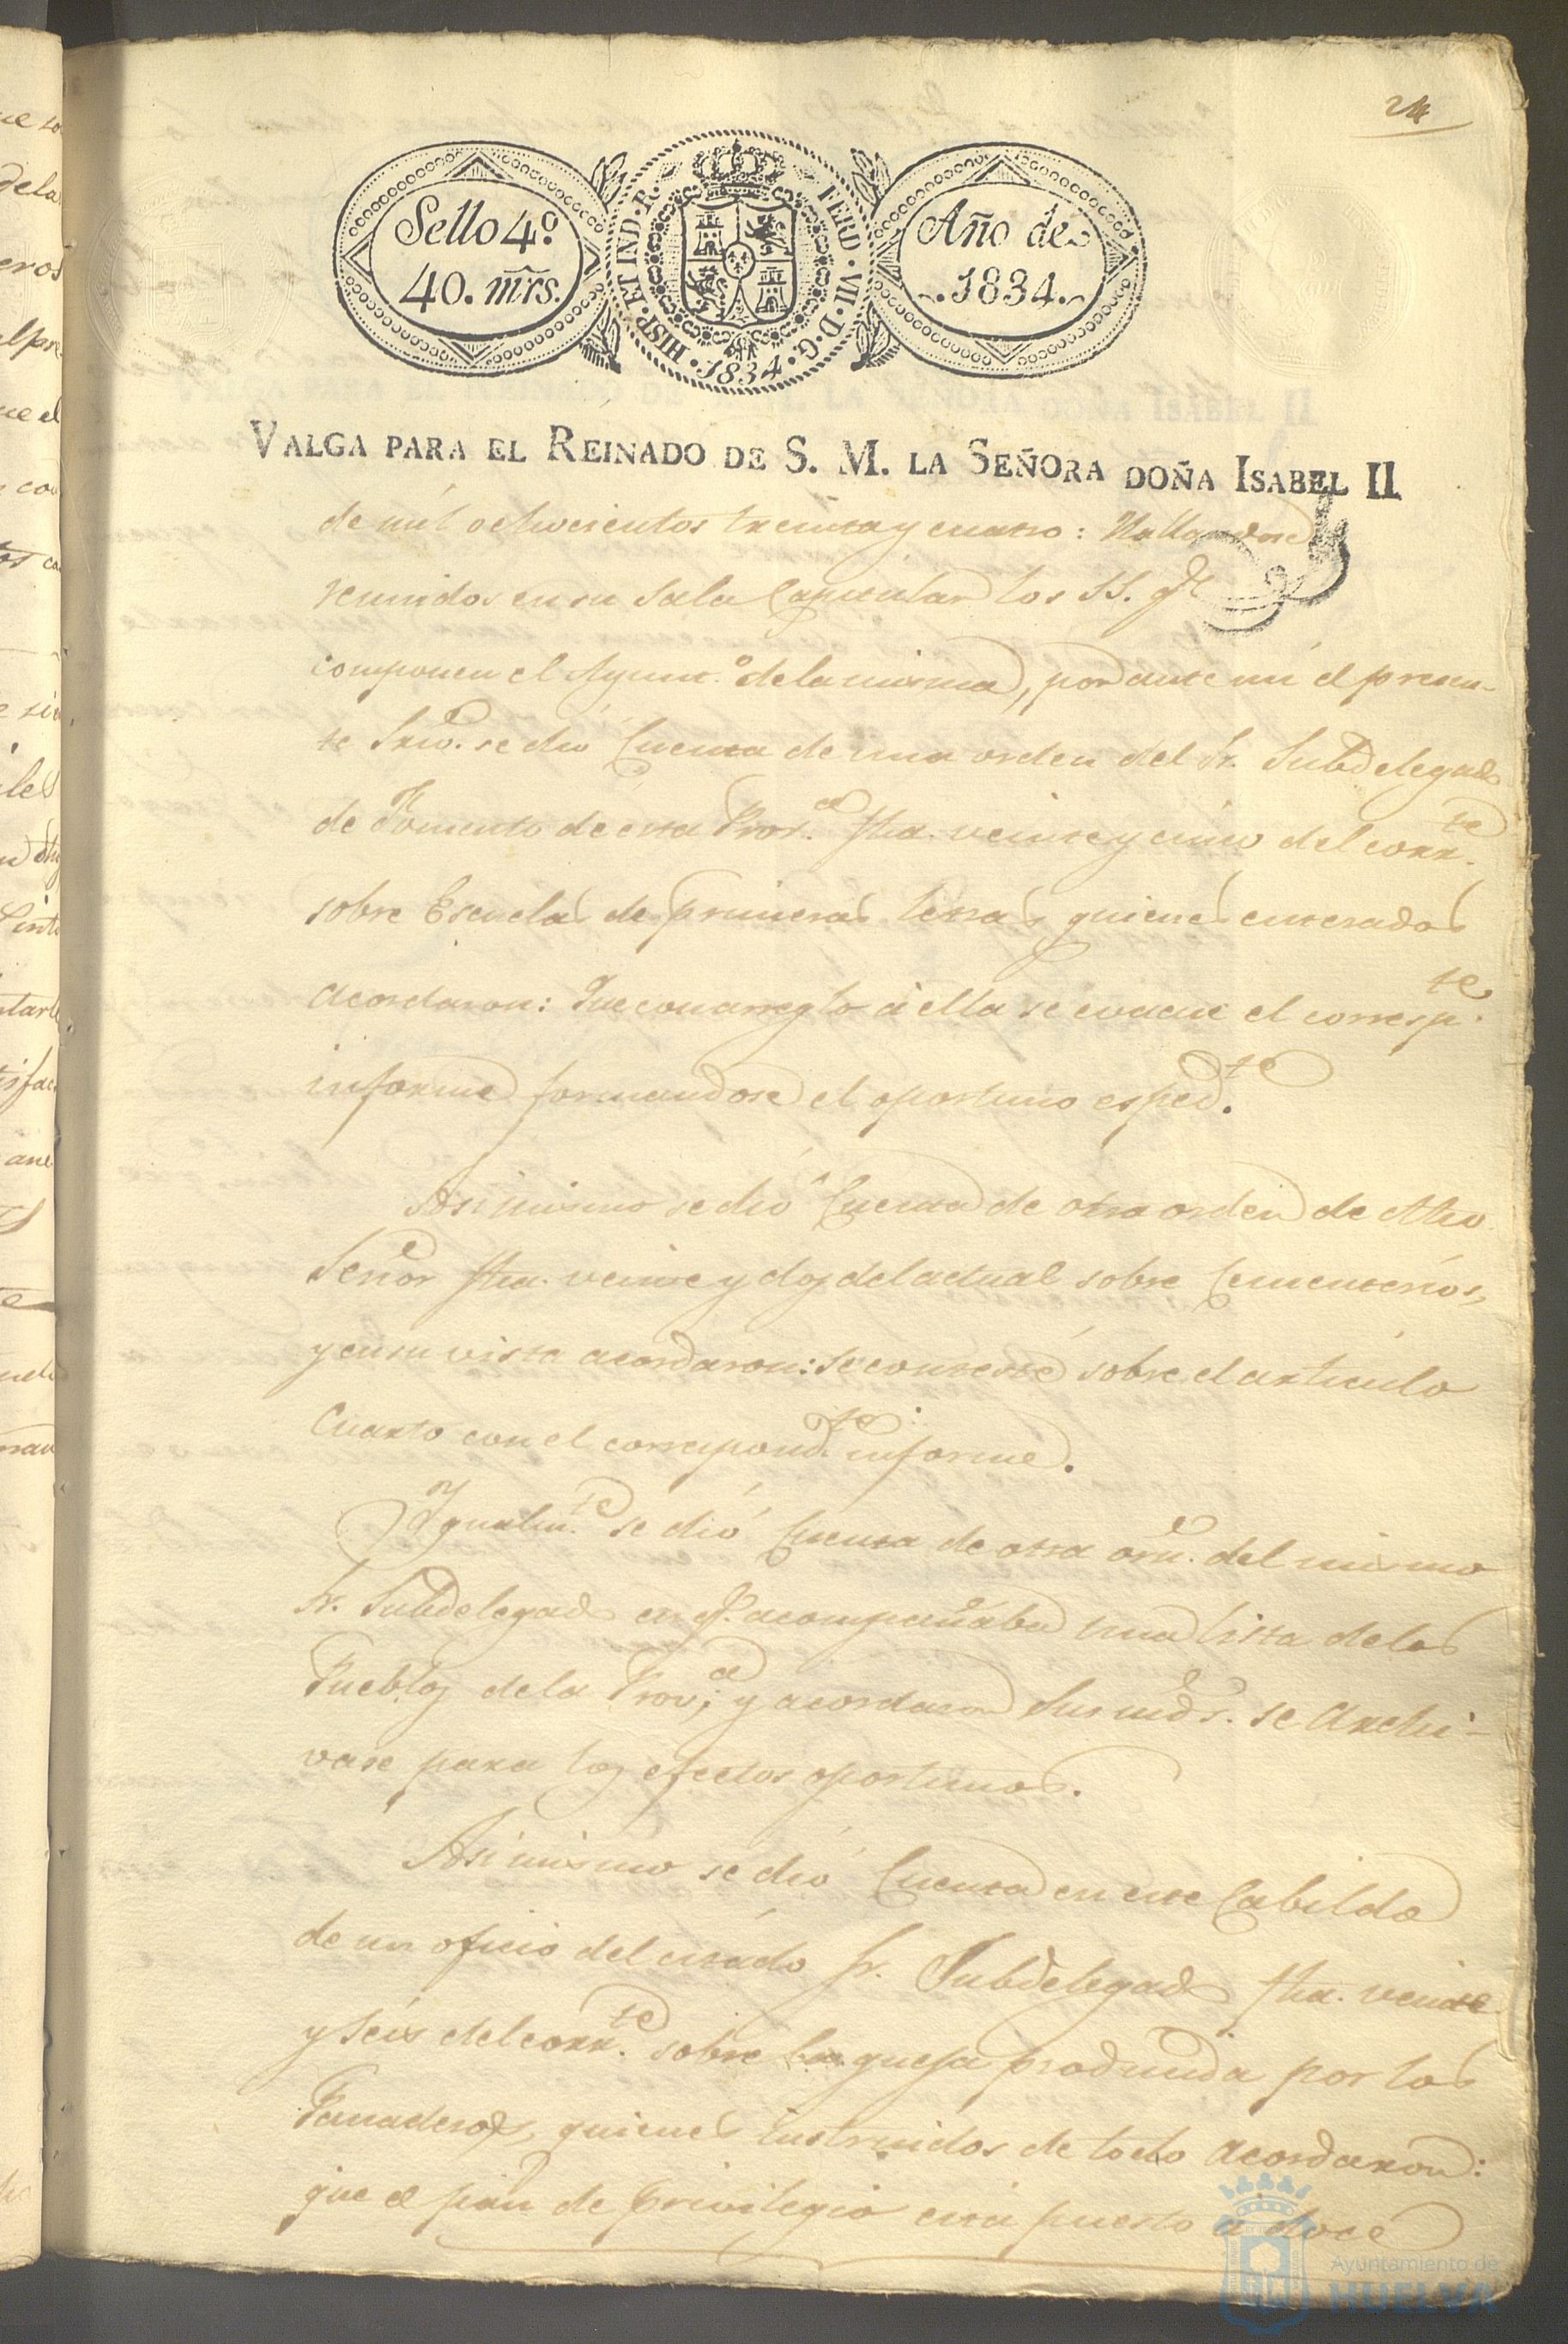 24
Sello 4º
40. mrs.
HISP. ET IND. R.
FERD. VII. D. G.
1834.
Año de
1834.
VALGA PARA EL REINADO DE S. M. LA SEÑORA DOÑA ISABEL II
de mil ochocientos treinta y cuatro: Hallandose
reunidos en su Sala Capitular los SS. qe
componen el Ayunt.º de la misma, por ante mi el presen-
te Srio. se dió Cuenta de una orden del Sr. Subdelegado
de Fomento de esta Prov.ª fha. veinte y cinco del corr.te
sobre Escuelas de primeras letras, quienes enterados
acordaron: Que con arreglo á ella se evacue el corresp.te
informe formandose el oportuno esped.te
Asi mismo se dió Cuenta de otra orden de dho
Señor fha. veinte y dos del actual sobre Cementerios,
y en su vista acordaron: se conteste sobre el articulo
Cuarto con el correspond.te informe.
Ygualm.te se dió Cuenta de otra orn. del mismo
Sr. Subdelegado en q.e acompañaba una lista de los
Pueblos de la Prov.ª; y acordaron Sus mds. se Archi-
vase para los efectos oportunos.
Asi mismo se dió Cuenta en este Cabildo
de un oficio del citado Sr. Subdelegado fha. veinte
y seis del corr.te sobre la queja producida por los
Panaderos, quienes instruidos de todo acordaron:
que el pan de privilegio está puesto á doce
Ayuntamiento de
HUELVA